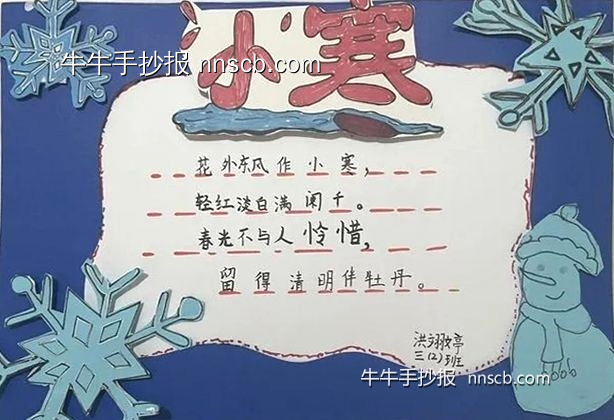 小寒
牛牛手抄报 nnscb.com
花外东风作小寒，
轻红淡白满阑干。
春光不与人怜惜，
留得清明伴牡丹。
三(2)班
牛牛手抄报 nnscb.com